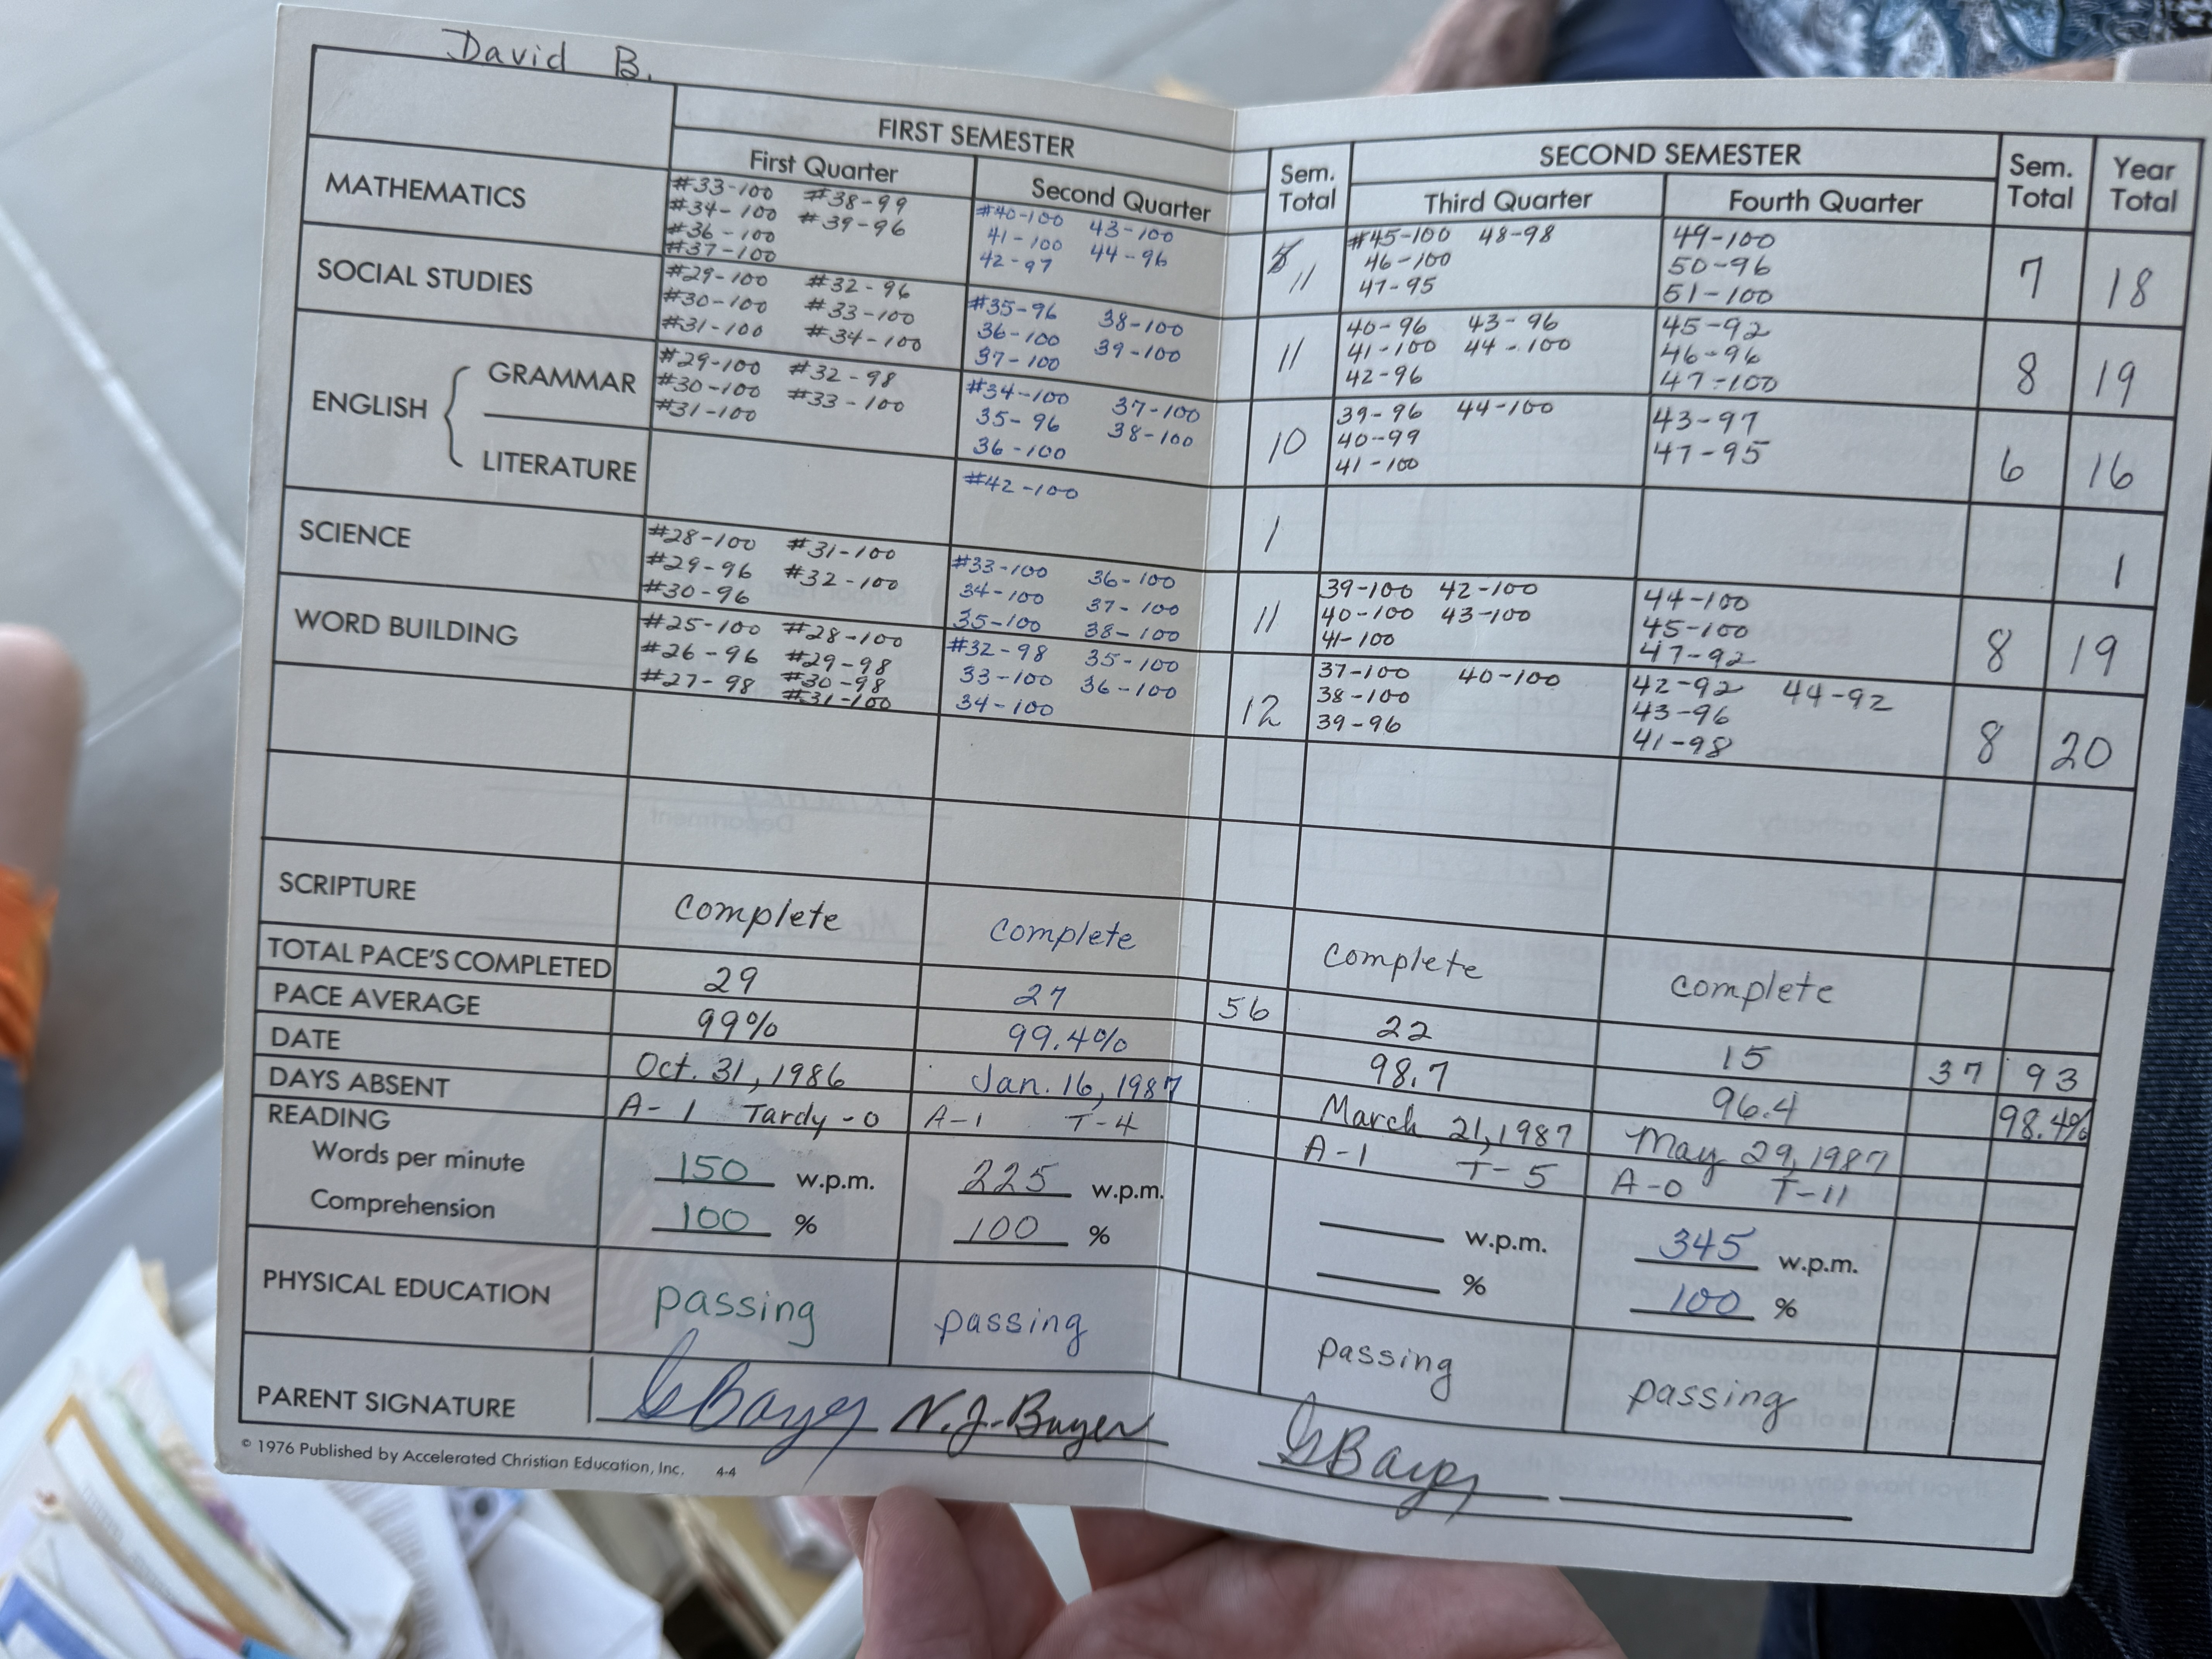 David B.
FIRST SEMESTER
First Quarter
Second Quarter
Sem. Total
SECOND SEMESTER
Third Quarter
Fourth Quarter
Sem. Total
Year Total
MATHEMATICS
#33-100 #38-99
#34-100 #39-96
#36-100
#37-100
#40-100 43-100
41-100 44-96
42-97
11
#45-100 48-98
46-100
47-95
49-100
50-96
51-100
7
18
SOCIAL STUDIES
#29-100 #32-96
#30-100 #33-100
#31-100 #34-100
#35-96 38-100
36-100 39-100
37-100
11
40-96 43-96
41-100 44-100
42-96
45-92
46-96
47-100
8
19
ENGLISH
GRAMMAR
#29-100 #32-98
#30-100 #33-100
#31-100
#34-100 37-100
35-96 38-100
36-100
10
39-96 44-100
40-99
41-100
43-97
47-95
6
16
LITERATURE
#42-100
1
1
SCIENCE
#28-100 #31-100
#29-96 #32-100
#30-96
#33-100 36-100
34-100 37-100
35-100 38-100
11
39-100 42-100
40-100 43-100
41-100
44-100
45-100
47-92
8
19
WORD BUILDING
#25-100 #28-100
#26-96 #29-98
#27-98 #30-98
#31-100
#32-98 35-100
33-100 36-100
34-100
12
37-100 40-100
38-100
39-96
42-92 44-92
43-96
41-98
8
20
SCRIPTURE
complete
complete
complete
complete
TOTAL PACE'S COMPLETED
29
27
56
22
15
37
93
PACE AVERAGE
99%
99.4%
98.7
96.4
98.4%
DATE
Oct. 31, 1986
Jan. 16, 1987
March 21, 1987
May 29, 1987
DAYS ABSENT
A-1 Tardy-0
A-1 T-4
A-1 T-5
A-0 T-11
READING
Words per minute
150 w.p.m.
225 w.p.m.
w.p.m.
345 w.p.m.
Comprehension
100 %
100 %
%
100 %
PHYSICAL EDUCATION
passing
passing
passing
passing
PARENT SIGNATURE
G Bayer N.J. Bayer
G Bayer
© 1976 Published by Accelerated Christian Education, Inc. 4-4